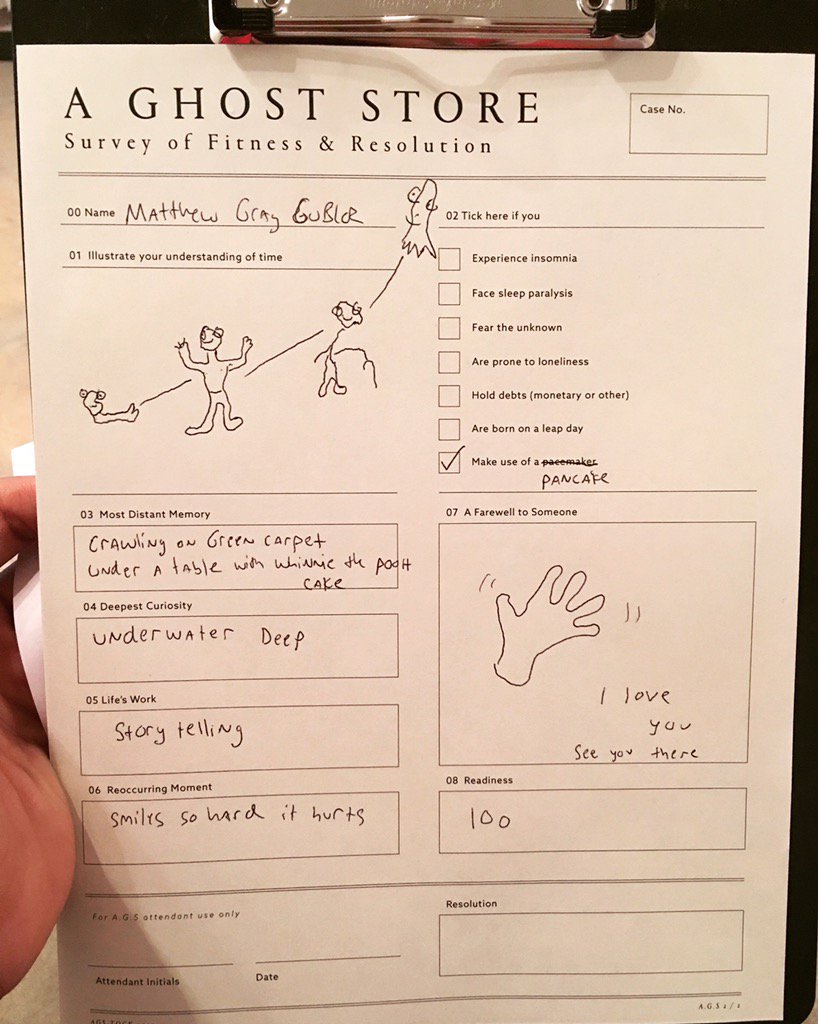 A GHOST STORE
Survey of Fitness & Resolution
Case No.
00 Name MATTHEW GRAY GUBLER
01 Illustrate your understanding of time
02 Tick here if you
Experience insomnia
Face sleep paralysis
Fear the unknown
Are prone to loneliness
Hold debts (monetary or other)
Are born on a leap day
Make use of a pacemaker
PANCAKE
03 Most Distant Memory
CRAWLING ON GREEN CARPET
UNDER A TABLE WITH WHINNIE the POOH
CAKE
04 Deepest Curiosity
UNDERWATER DEEP
05 Life's Work
Story telling
06 Reoccurring Moment
SMILES SO HARD it hurts
07 A Farewell to Someone
I love
you
See you there
08 Readiness
100
For A.G.S attendant use only
Attendant Initials
Date
Resolution
A.G.S 1 / 1